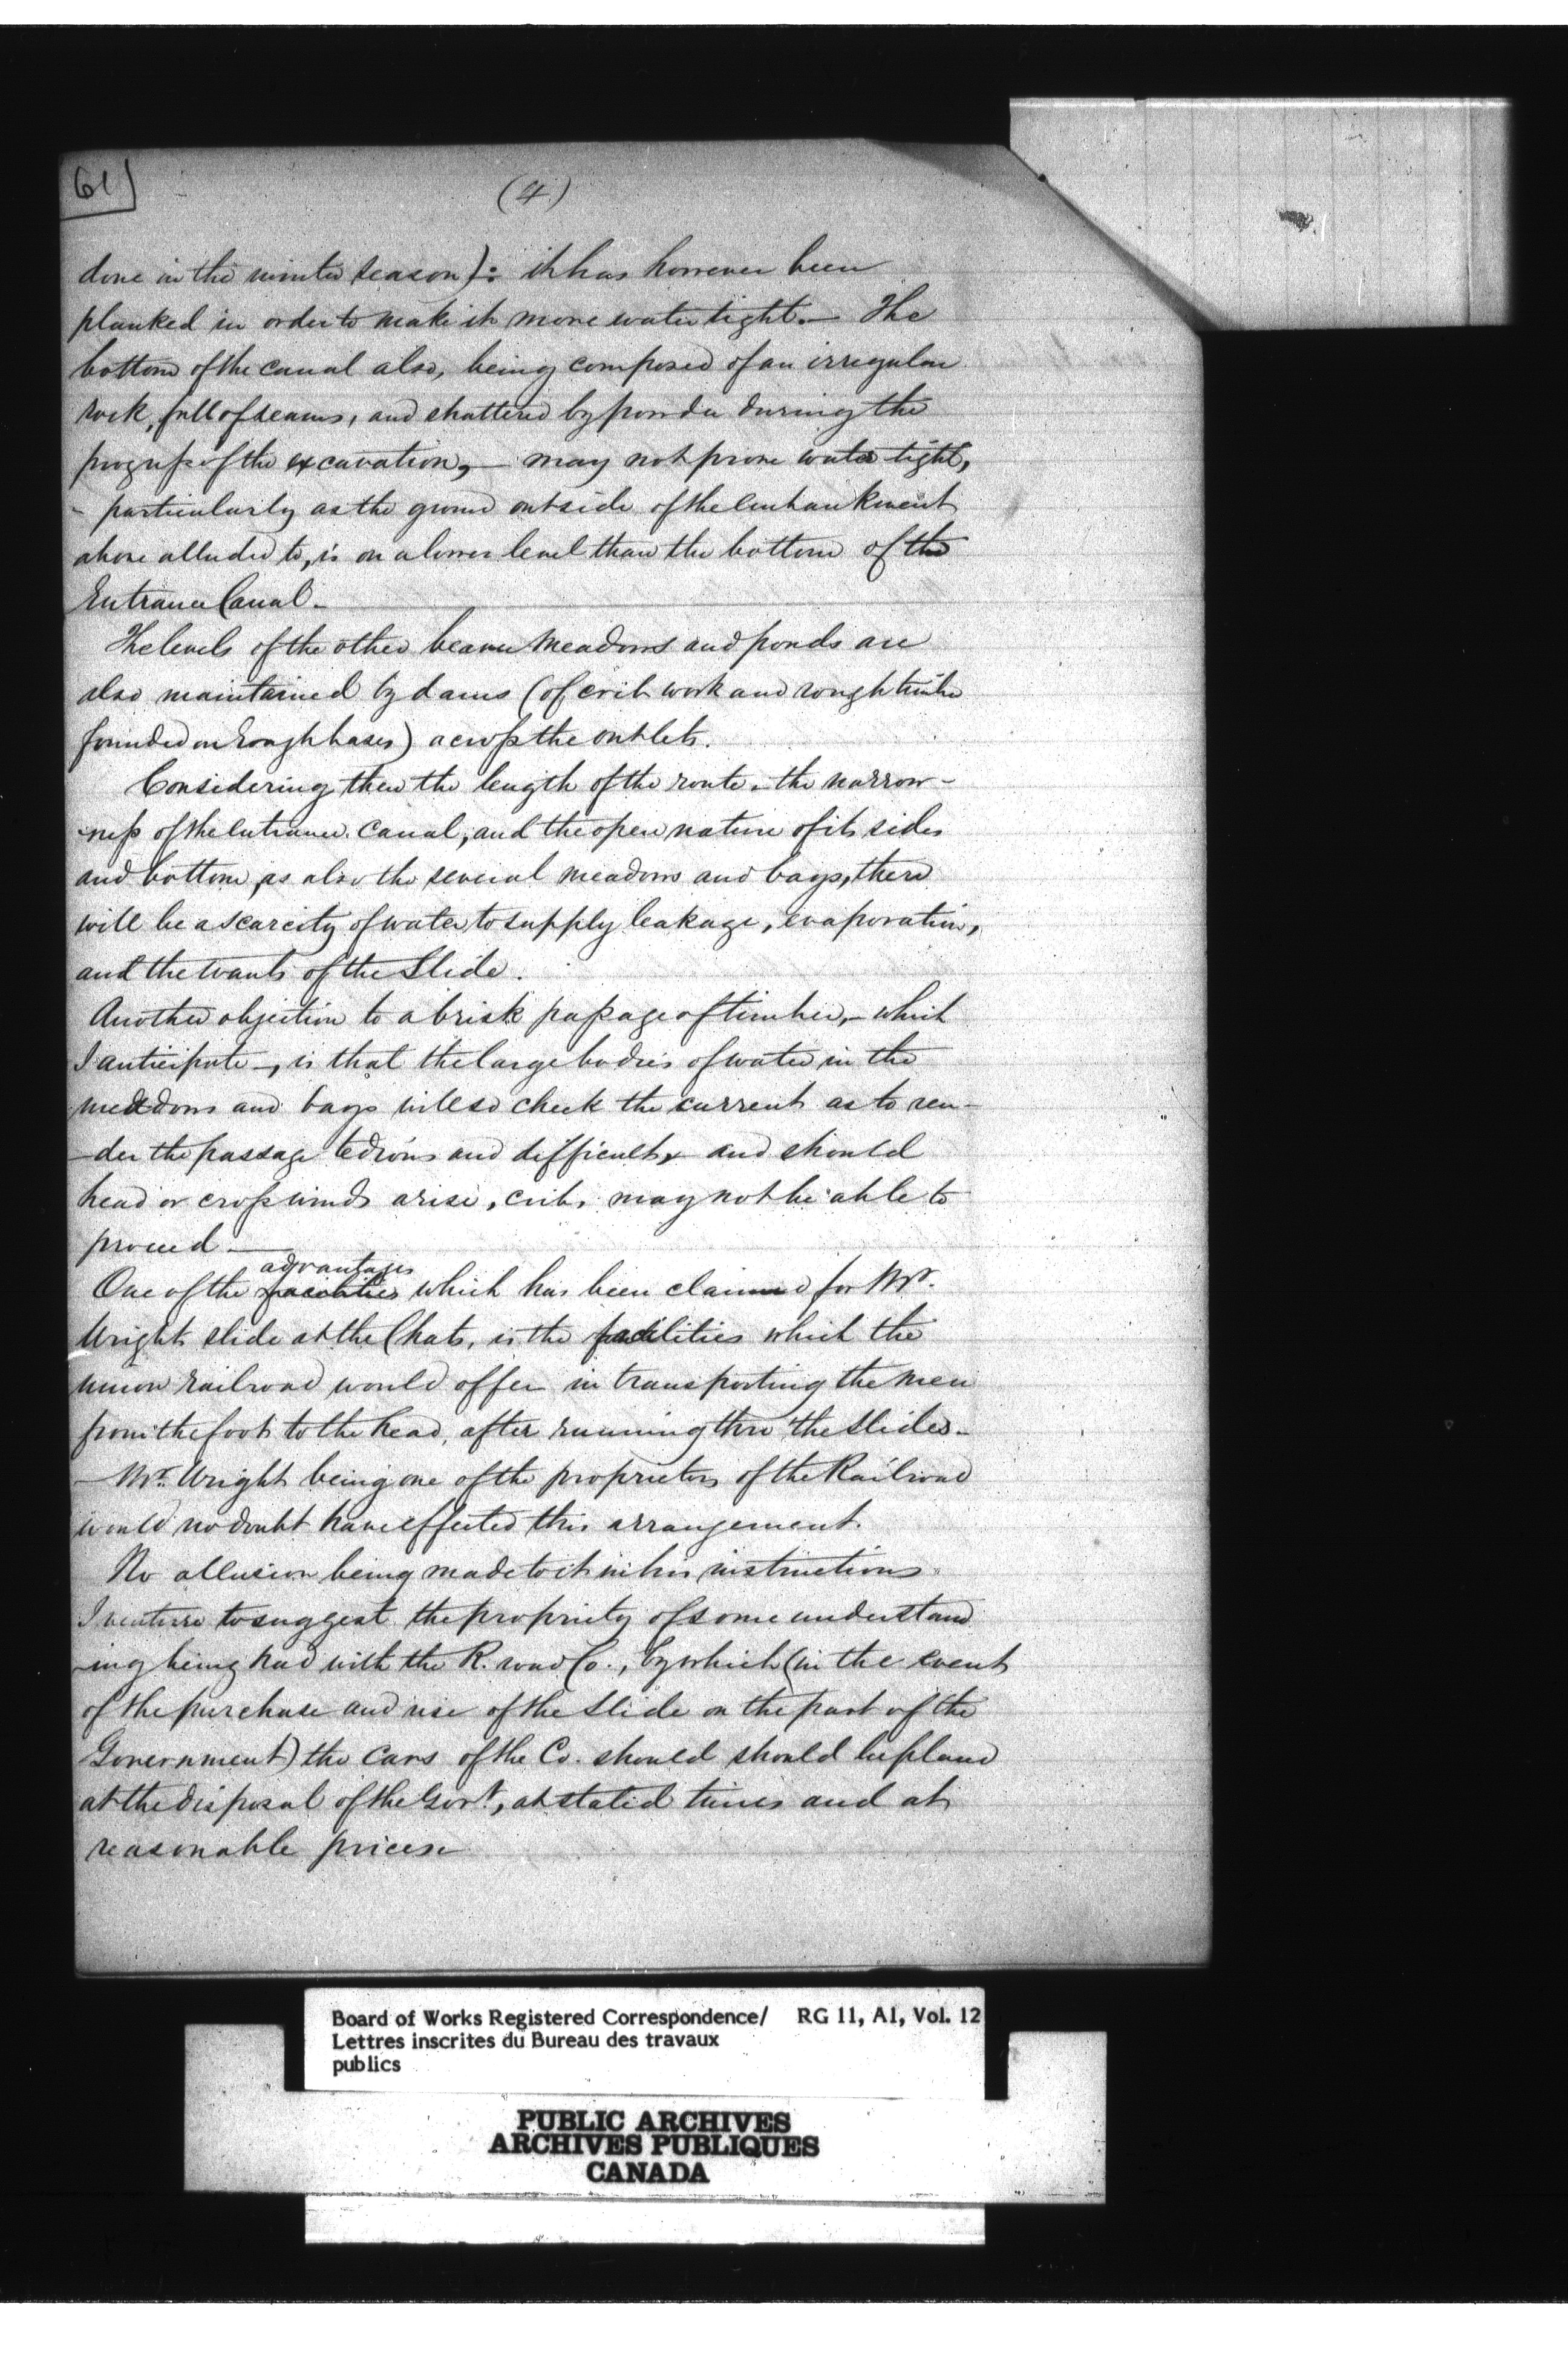 61
(4)
done in the winter season): it has however been
planked in order to make it more water tight. — The
bottom of the canal also, being composed of an irregular
rock, full of seams, and shattered by powder during the
progress of the excavation, — may not prove water tight,
- particularly as the ground outside of the embankment
above alluded to, is on a lower level than the bottom of the
Entrance Canal —
The levels of the other beaver meadows and ponds are
also maintained by dams (of crib work and rough timber
founded on rough bases) across the outlets.
Considering then the length of the route, the narrow-
-ness of the entrance canal, and the open nature of its sides
and bottom, as also the several meadows and bays, there
will be a scarcity of water to supply leakage, evaporation,
and the wants of the Slide.
Another objection to a brisk passage of timber, — which
I anticipate —, is that the large bodies of water in the
meadows and bays will so check the current as to ren-
-der the passage tedious and difficult, and should
head or cross winds arise, cribs may not be able to
proceed —
advantages
One of the facilities which has been claimed for Mr.
Wrights slide at the Chats, is the facilities which the
union railroad would offer in transporting the men
from the foot to the head, after running thro' the slides —
— Mr. Wright being one of the proprietors of the Railroad
would no doubt have effected this arrangement.
No allusion being made to it in his instructions
I venture to suggest the propriety of some understand
-ing being had with the R. road Co., by which (in the event
of the purchase and use of the Slide on the part of the
Government) the cars of the Co. should should be placed
at the disposal of the Govt., at stated times and at
reasonable prices
Board of Works Registered Correspondence/ RG 11, A1, Vol. 12
Lettres inscrites du Bureau des travaux
publics
PUBLIC ARCHIVES
ARCHIVES PUBLIQUES
CANADA